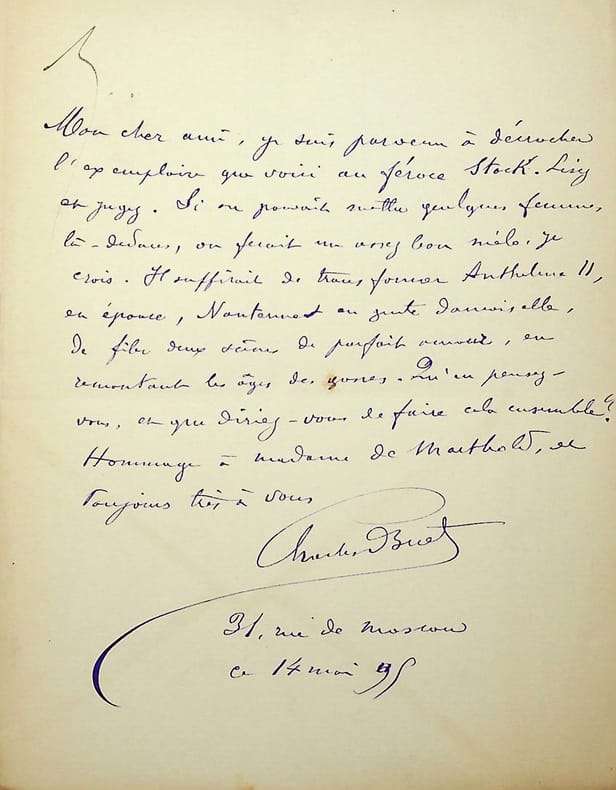 Mon cher ami, je suis parvenu à décrocher
l'exemplaire que voici au féroce Stock. Lisez
et jugez. Si on pouvait mettre quelques femmes
là-dedans, on ferait un assez bon mélo, je
crois. Il suffirait de transformer Anthelme II,
en épouse, Nantermet en gente damoiselle,
de filer deux scènes de parfait amour, en
remontant les âges des gosses. Qu'en pensez-
vous, et que diriez-vous de faire cela ensemble?
Hommage à madame de Marthold, et
toujours très à vous
Charles Buet
31, rue de Moscou
ce 14 mai 95